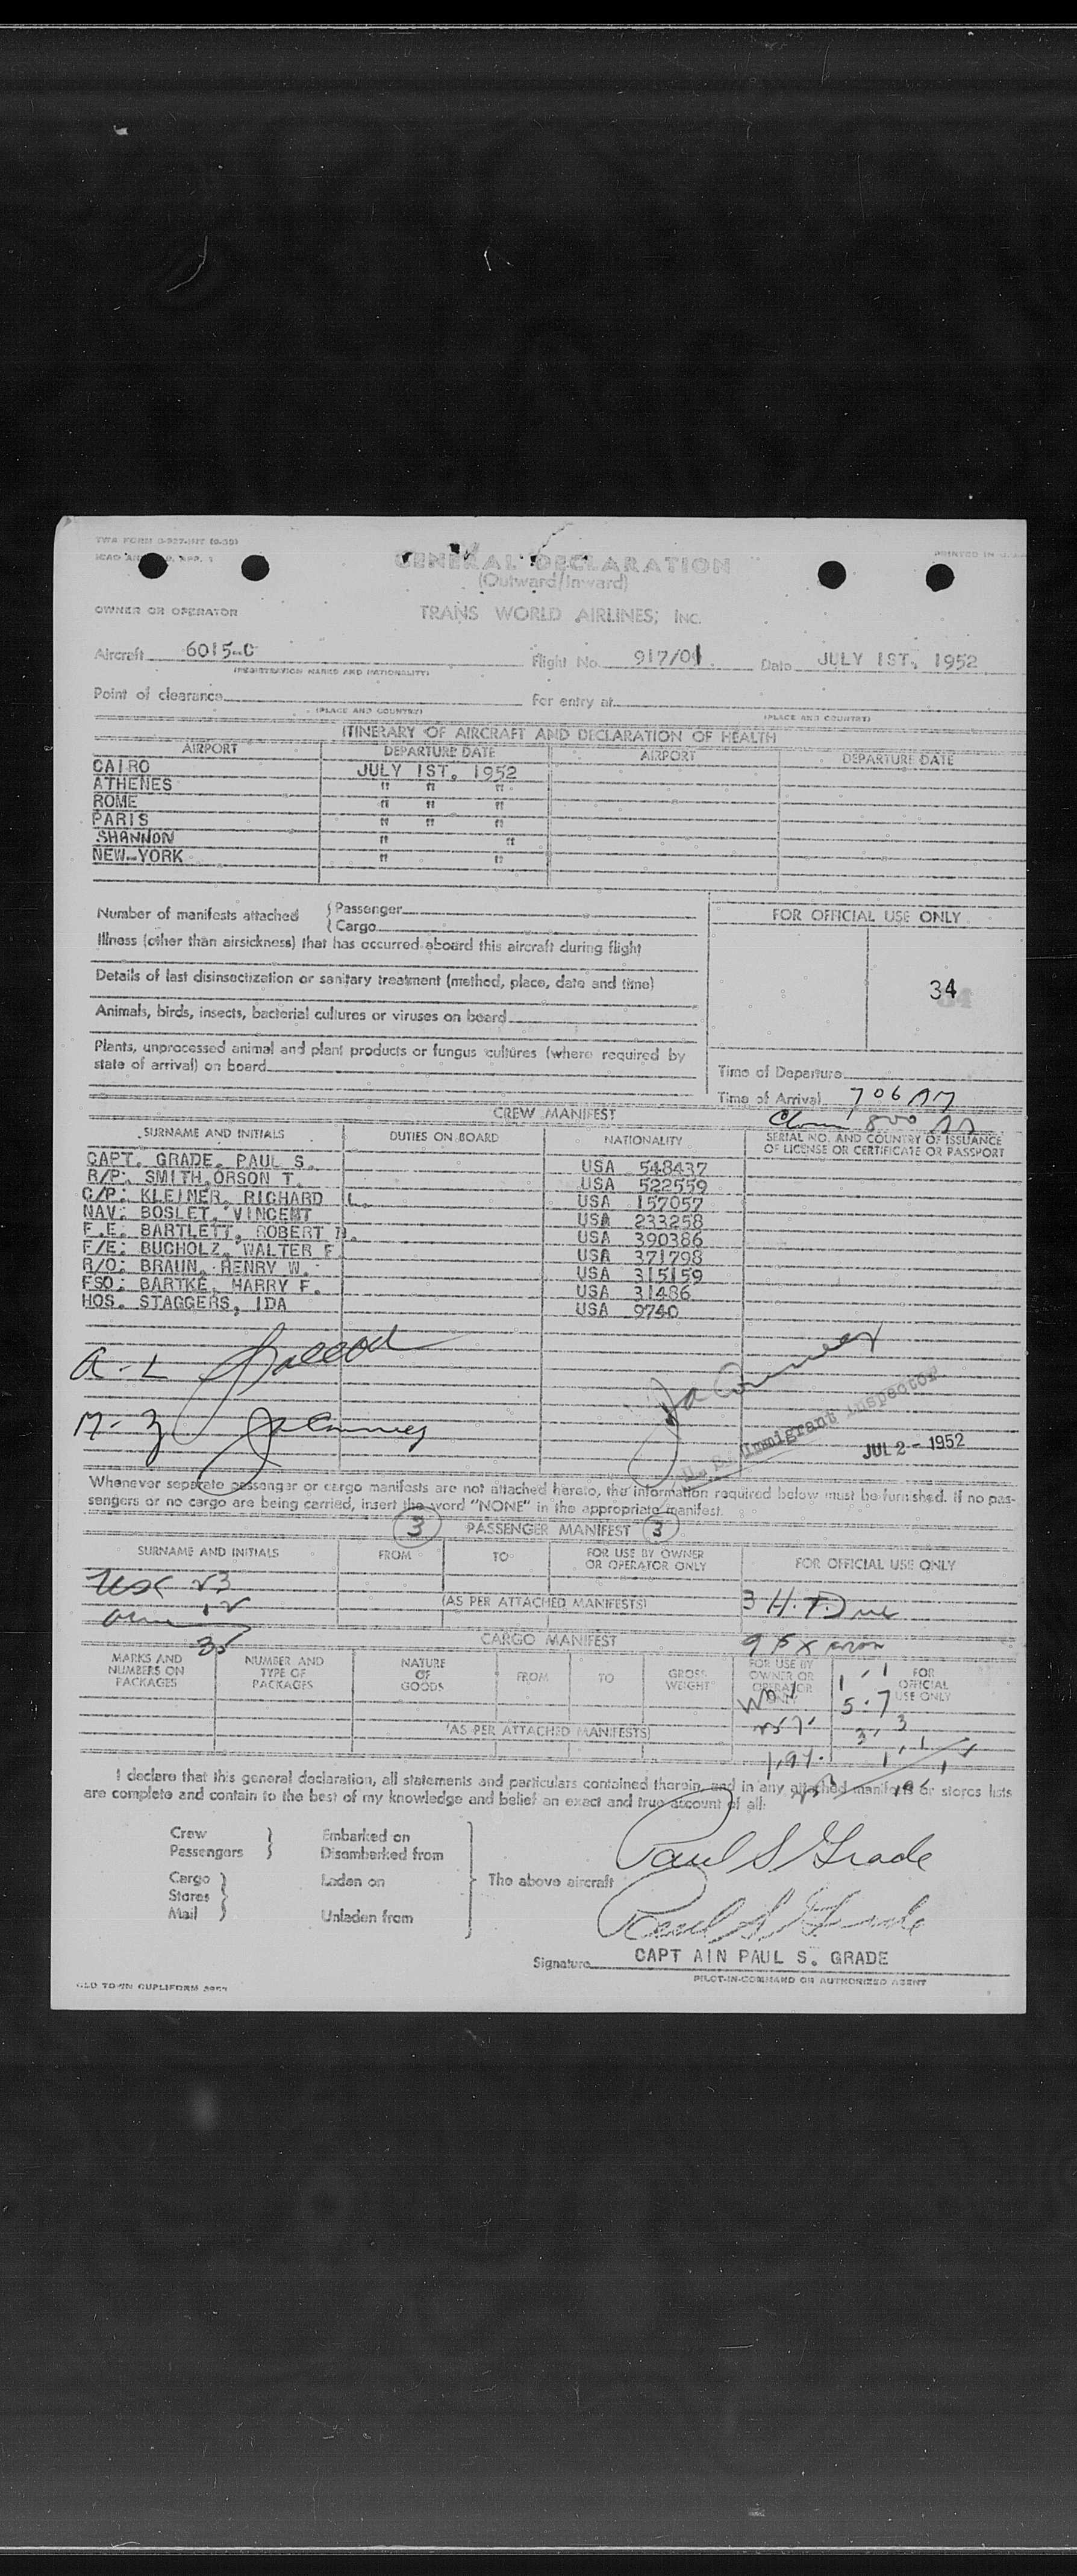 GENERAL DECLARATION
(Outward/Inward)
PRINTED IN U.S.A.
OWNER OR OPERATOR TRANS WORLD AIRLINES, INC.
Aircraft 6015-C Flight No. 917/01 Date JULY 1ST, 1952
(REGISTRATION MARKS AND NATIONALITY)
Point of clearance For entry at
(PLACE AND COUNTRY) (PLACE AND COUNTRY)
ITINERARY OF AIRCRAFT AND DECLARATION OF HEALTH
AIRPORT DEPARTURE DATE AIRPORT DEPARTURE DATE
CAIRO JULY 1ST, 1952
ATHENES " " "
ROME " " "
PARIS " " "
SHANNON " "
NEW-YORK " "
Number of manifests attached { Passenger
{ Cargo
FOR OFFICIAL USE ONLY
Illness (other than airsickness) that has occurred aboard this aircraft during flight
Details of last disinsectization or sanitary treatment (method, place, date and time)
34
Animals, birds, insects, bacterial cultures or viruses on board
Plants, unprocessed animal and plant products or fungus cultures (where required by
state of arrival) on board
Time of Departure
Time of Arrival 706 AM
800 AM
CREW MANIFEST
SURNAME AND INITIALS DUTIES ON BOARD NATIONALITY SERIAL NO. AND COUNTRY OF ISSUANCE
OF LICENSE OR CERTIFICATE OR PASSPORT
CAPT. GRADE, PAUL S. USA 548437
R/P: SMITH ORSON T. USA 522559
C/P: KLEINER, RICHARD L. USA 157057
NAV: BOSLET, VINCENT USA 233258
F.E. BARTLETT, ROBERT N. USA 390386
F/E: BUCHOLZ, WALTER F USA 371798
R/O: BRAUN, HENRY W. USA 315159
FSO: BARTKE, HARRY F. USA 31486
HOS. STAGGERS, IDA USA 9740
A-L
M-Z
U.S. Immigrant Inspector
JUL 2 - 1952
Whenever separate passenger or cargo manifests are not attached hereto, the information required below must be furnished. If no pas-
sengers or no cargo are being carried, insert the word "NONE" in the appropriate manifest.
3 PASSENGER MANIFEST 3
SURNAME AND INITIALS FROM TO FOR USE BY OWNER
OR OPERATOR ONLY FOR OFFICIAL USE ONLY
(AS PER ATTACHED MANIFESTS)
35
CARGO MANIFEST
MARKS AND
NUMBERS ON
PACKAGES NUMBER AND
TYPE OF
PACKAGES NATURE
OF
GOODS FROM TO GROSS
WEIGHT FOR USE BY
OWNER OR
OPERATOR
ONLY FOR
OFFICIAL
USE ONLY
(AS PER ATTACHED MANIFESTS)
I declare that this general declaration, all statements and particulars contained therein, and in any attached manifests or stores lists
are complete and contain to the best of my knowledge and belief an exact and true account of all:
Crew } Embarked on
Passengers } Disembarked from
Cargo } Laden on The above aircraft
Stores }
Mail } Unladen from
Paul S Grade
Paul S Grade
Signature CAPT AIN PAUL S. GRADE
PILOT-IN-COMMAND OR AUTHORIZED AGENT